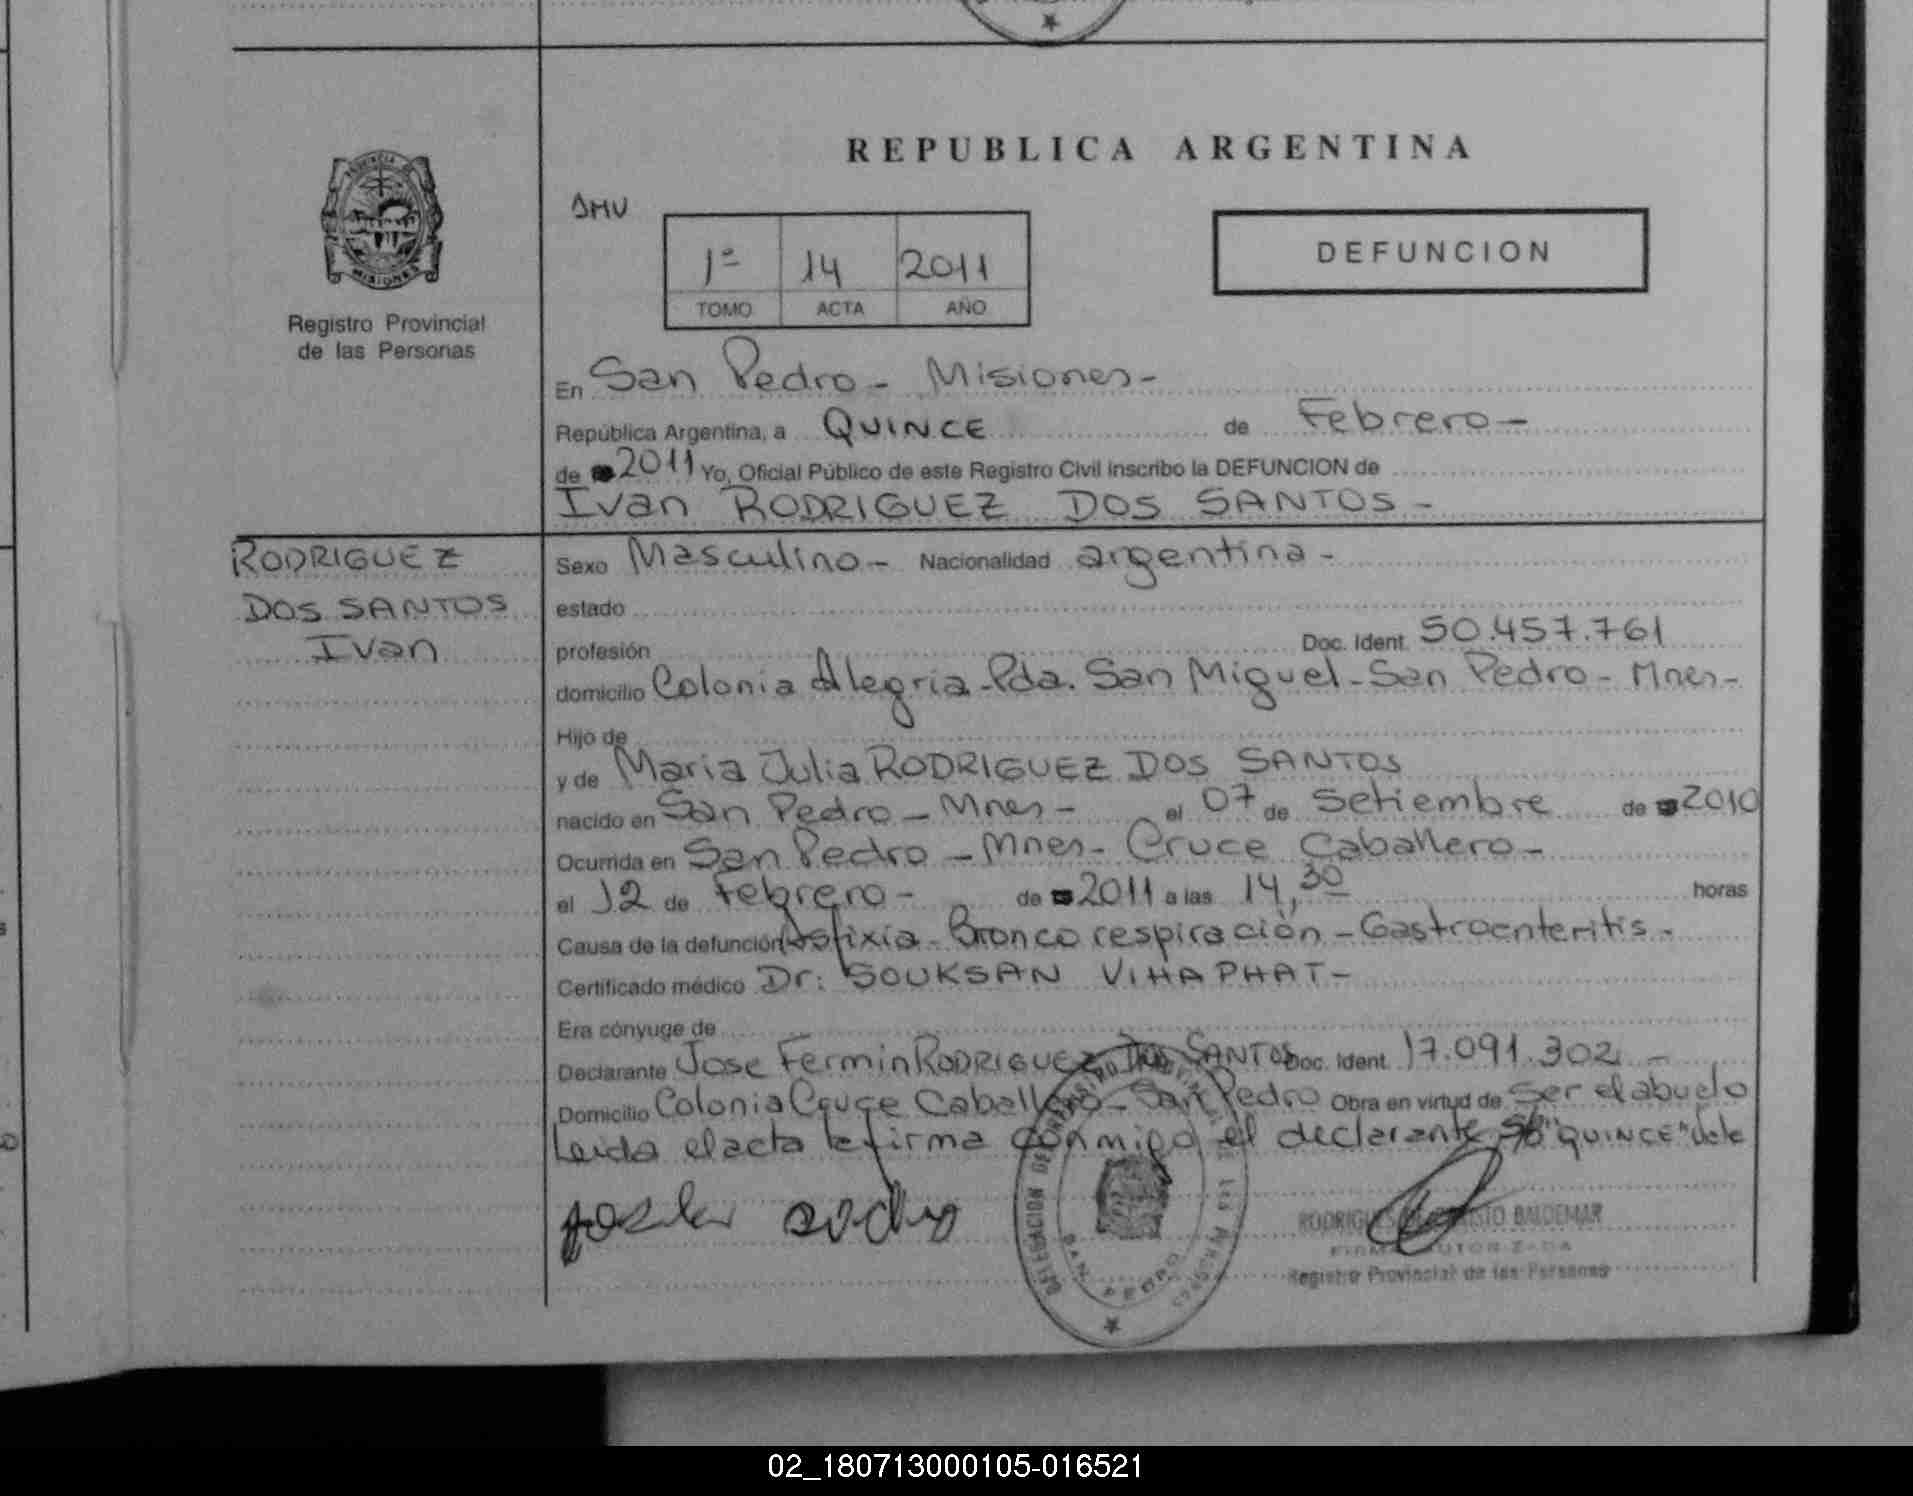 REPUBLICA ARGENTINA
PROVINCIA DE
MISIONES
Registro Provincial
de las Personas
JMU
1º 14 2011
TOMO ACTA AÑO
DEFUNCION
En San Pedro - Misiones -
República Argentina, a QUINCE de Febrero -
de 2011 Yo, Oficial Público de este Registro Civil inscribo la DEFUNCION de
Ivan RODRIGUEZ DOS SANTOS -
RODRIGUEZ
DOS SANTOS
Ivan
Sexo Masculino - Nacionalidad argentina -
estado
profesión Doc. Ident. 50.457.761
domicilio Colonia Alegria - Pda. San Miguel - San Pedro - Mnes -
Hijo de
y de Maria Julia RODRIGUEZ DOS SANTOS
nacido en San Pedro - Mnes - el 07 de Setiembre de 2010
Ocurrida en San Pedro - Mnes - Cruce Caballero -
el 12 de Febrero - de 2011 a las 14,30 horas
Causa de la defunción Asfixia - Bronco respiración - Gastroenteritis -
Certificado médico Dr: SOUKSAN VIHAPHAT -
Era cónyuge de
Declarante Jose Fermin RODRIGUEZ DOS SANTOS Doc. Ident. 17.091.302 -
Domicilio Colonia Cruce Caballero - San Pedro Obra en virtud de Ser el abuelo
Leida el acta la firma conmigo el declarante S/b "QUINCE" Vale
DELEGACION DEL REGISTRO PROVINCIAL DE LAS PERSONAS
SAN PEDRO
BALDEMAR
FIRMA AUTORIZADA
Registro Provincial de las Personas
02_180713000105-016521